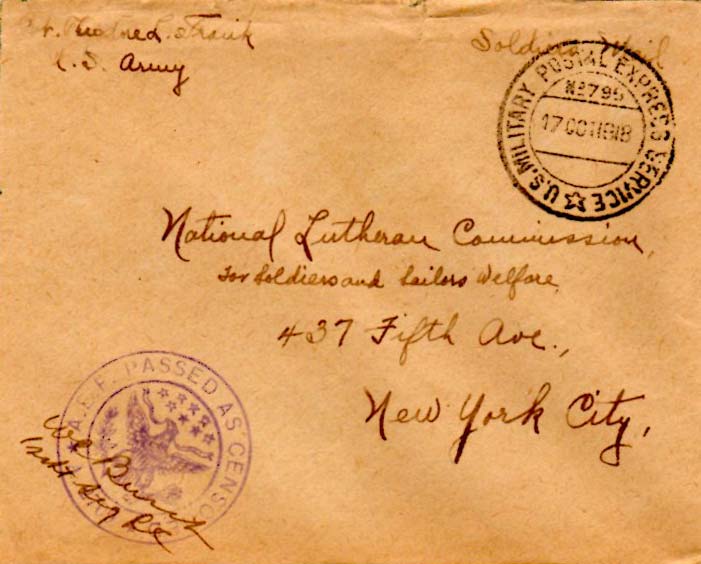 L. Frank
U.S. Army
Soldiers Mail
U.S. MILITARY POSTAL EXPRESS SERVICE
No 795
17 OCT 1918
National Lutheran Commission,
For Soldiers and Sailors Welfare,
437 Fifth Ave.,
New York City,
A.E.F. PASSED AS CENSORED